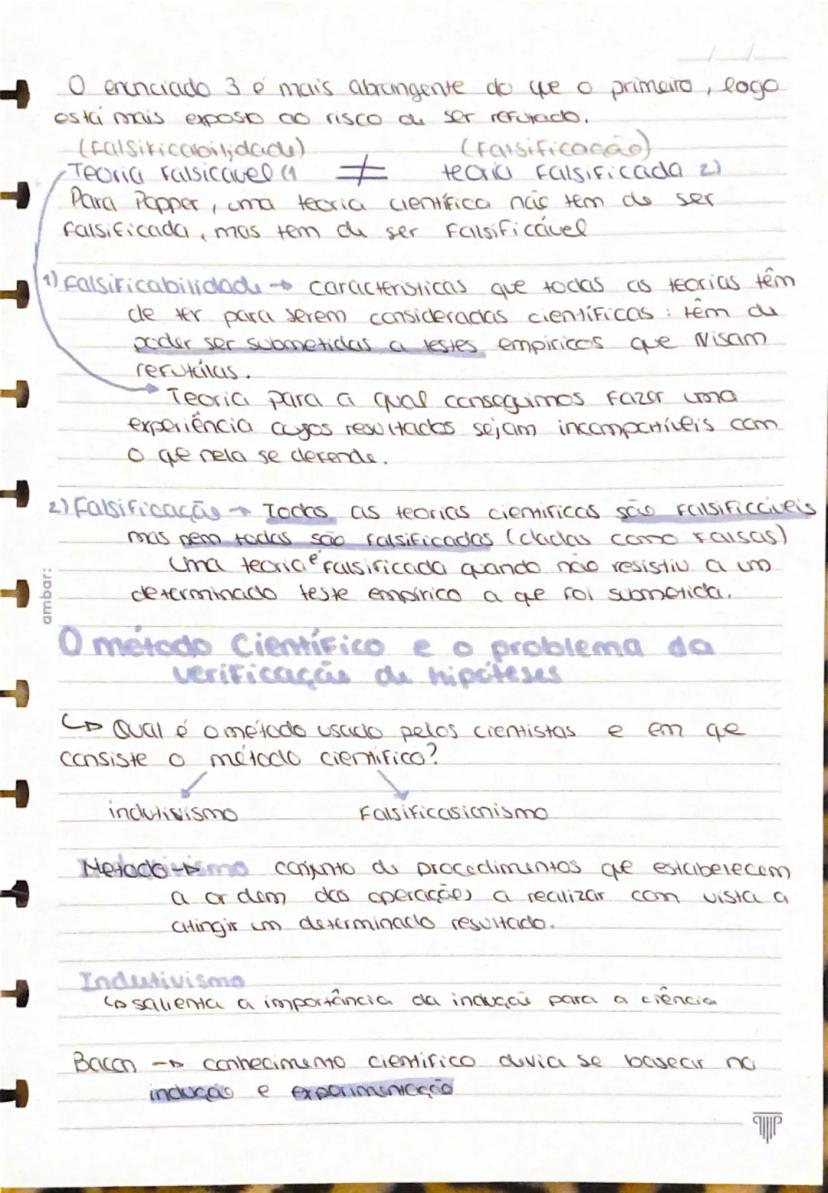 O enunciado 3 é mais abrangente do que o primeiro, logo
está mais exposto ao risco de ser refutado.
(Falsificabilidade) (Falsificação)
Teoria Falsicável (1 ≠ teoria Falsificada 2)
Para Popper, uma teoria científica não tem de ser
falsificada, mas tem de ser Falsificável
1) Falsificabilidade → características que todas as teorias têm
de ter para serem consideradas científicas: têm de
poder ser submetidas a testes empíricos que visam
refutálas.
Teoria para a qual conseguimos fazer uma
experiência cujos resultados sejam incompatíveis com
o que nela se defende.
2) Falsificação → Todas as teorias científicas são Falsificáveis
mas nem todas são falsificadas (dadas como Falsas)
Uma teoria é falsificada quando não resistiu a um
determinado teste empírico a que foi submetida.
ambar:
O método Científico e o problema da
verificação de hipóteses
↳ Qual é o método usado pelos cientistas e em que
consiste o método científico?
indutivismo Falsificasionismo
Metodo → conjunto de procedimentos que estaberecem
a ordem das operações a realizar com vista a
atingir um determinado resultado.
Indutivismo
↳ salienta a importância da indução para a ciência
Bacon → conhecimento científico devia se basear na
indução e experimentação